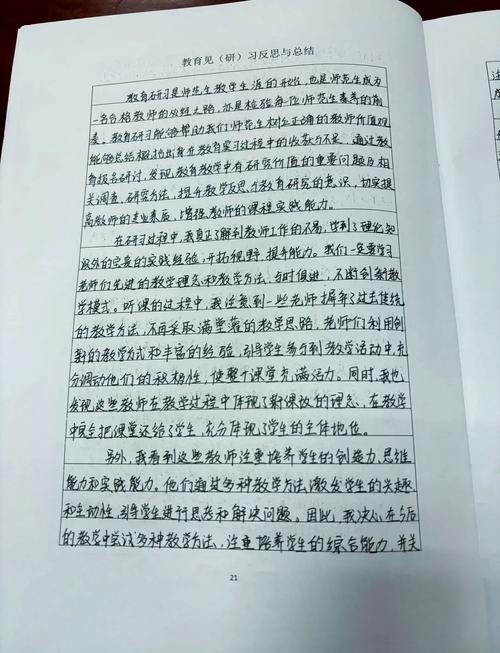 教育见（研）习反思与总结
教育研习是师范生教学生涯的开始，也是师范生成为
一名合格教师的必经之路，亦是检验每一位师范生素养的前
奏。教育研习能够帮助我们师范生树立正确的教师价值观，
能够总结概括出自身在教育实习过程中的收获与不足，通过教
育报名研讨，发现教育教学中有研究价值的重要问题及相
关调查、研究方法，提升教学反思与教育研究的意识，切实提
高教师的专业素质，增强教师的课程实践能力。
在研习过程中，我真正了解到教师工作的不易，学到了理论知
识外的宝贵的实践经验，开拓视野，提升能力。我们一定要学习
老师们先进的教学理念和教学方法，与时俱进，不断创新教
学模式。听课的过程中，我注意到一些老师摒弃了过去传统
的教学方法，不再采取满堂灌的教学思路，老师们利用创
新的教学方式和丰富的经验，引导学生参与到教学活动中，充
分调动他们的积极性，使整个课堂充满活力。同时，我也
发现这些教师在教学过程中体现了新课改的理念，在教学
中完全把课堂还给了学生，充分体现了学生的主体地位。
另外，我看到这些教师注重培养学生的创造力、思维
能力和实践能力。他们通过多种教学方法，激发学生的兴趣
和主动性，引导学生进行思考和解决问题。因此，我决心在今后
的教学中尝试多种教学方法，注重培养学生的综合能力，并关
21
注